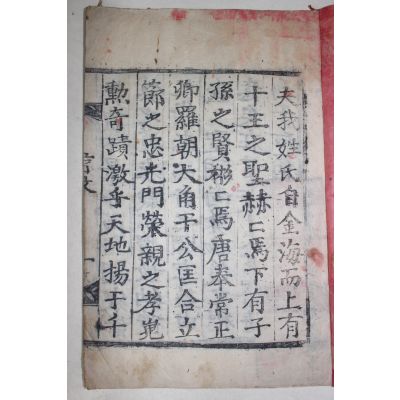 夫我姓氏自金海而上有
十王之聖赫〻焉下有子
孫之賢彬〻焉唐奉常正
卿羅朝大角干公匡合立
節之忠光門榮親之孝
勲奇蹟激乎天地揚于千